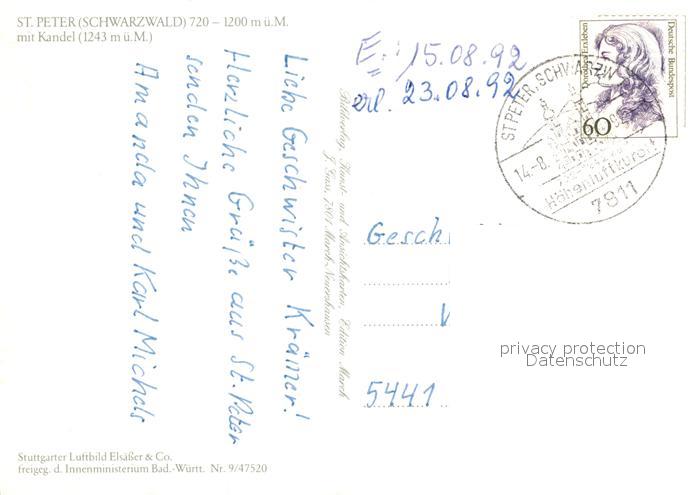 ST. PETER (SCHWARZWALD) 720 – 1200 m ü.M.
mit Kandel (1243 m ü.M.)
Liebe Geschwister Krämer!
Herzliche Grüße aus St. Peter
senden Ihnen
Amanda und Karl Michels
Stuttgarter Luftbild Elsäßer & Co.
freigeg. d. Innenministerium Bad.-Württ. Nr. 9/47520
Kunst- und Ansichtskarten, Edition March
7801 March-Neuershausen
E.: 15.08.92
erl. 23.08.92
Dorothea Erxleben
Deutsche Bundespost
60
ST. PETER, SCHWARZW
14.-8.
Höhenluftkurort
7811
Gesch
5441
privacy protection
Datenschutz